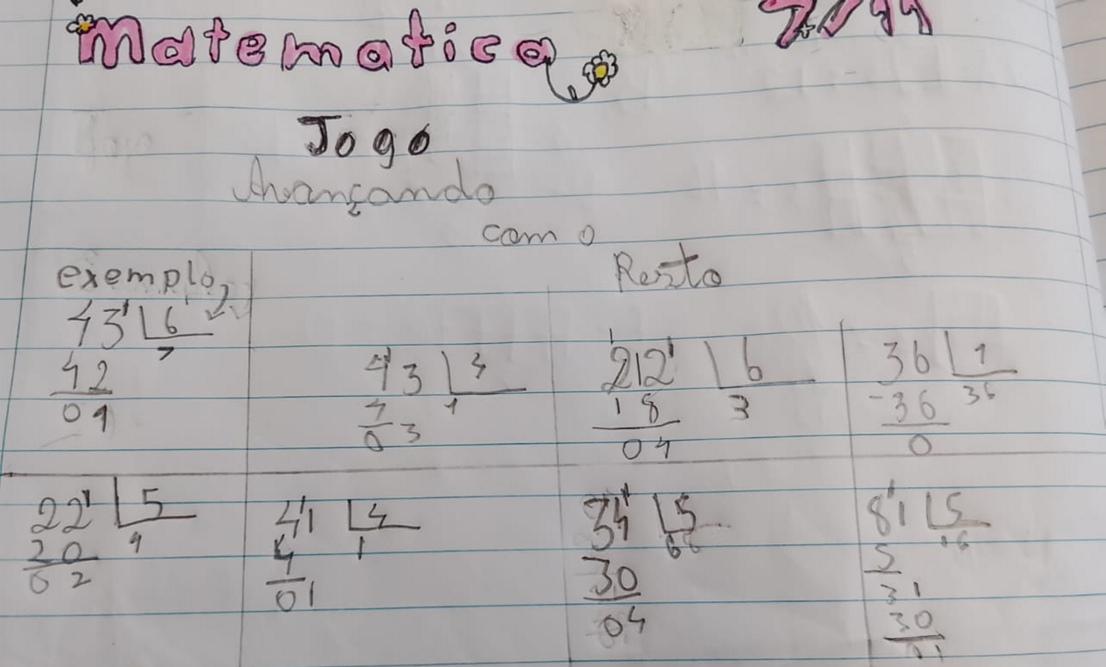 Matematica 7/11
Jogo
Avançando
com o
Resto
exemplo
43 6
42 7
01
43 4
4 1
03
22 6
18 3
04
36 1
-36 36
0
22 5
20 4
02
41 4
4 1
01
34 5
30 6
04
81 5
5 16
31
30
01